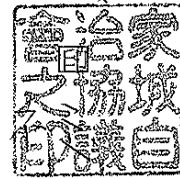 家城自
治協議
會之印
印